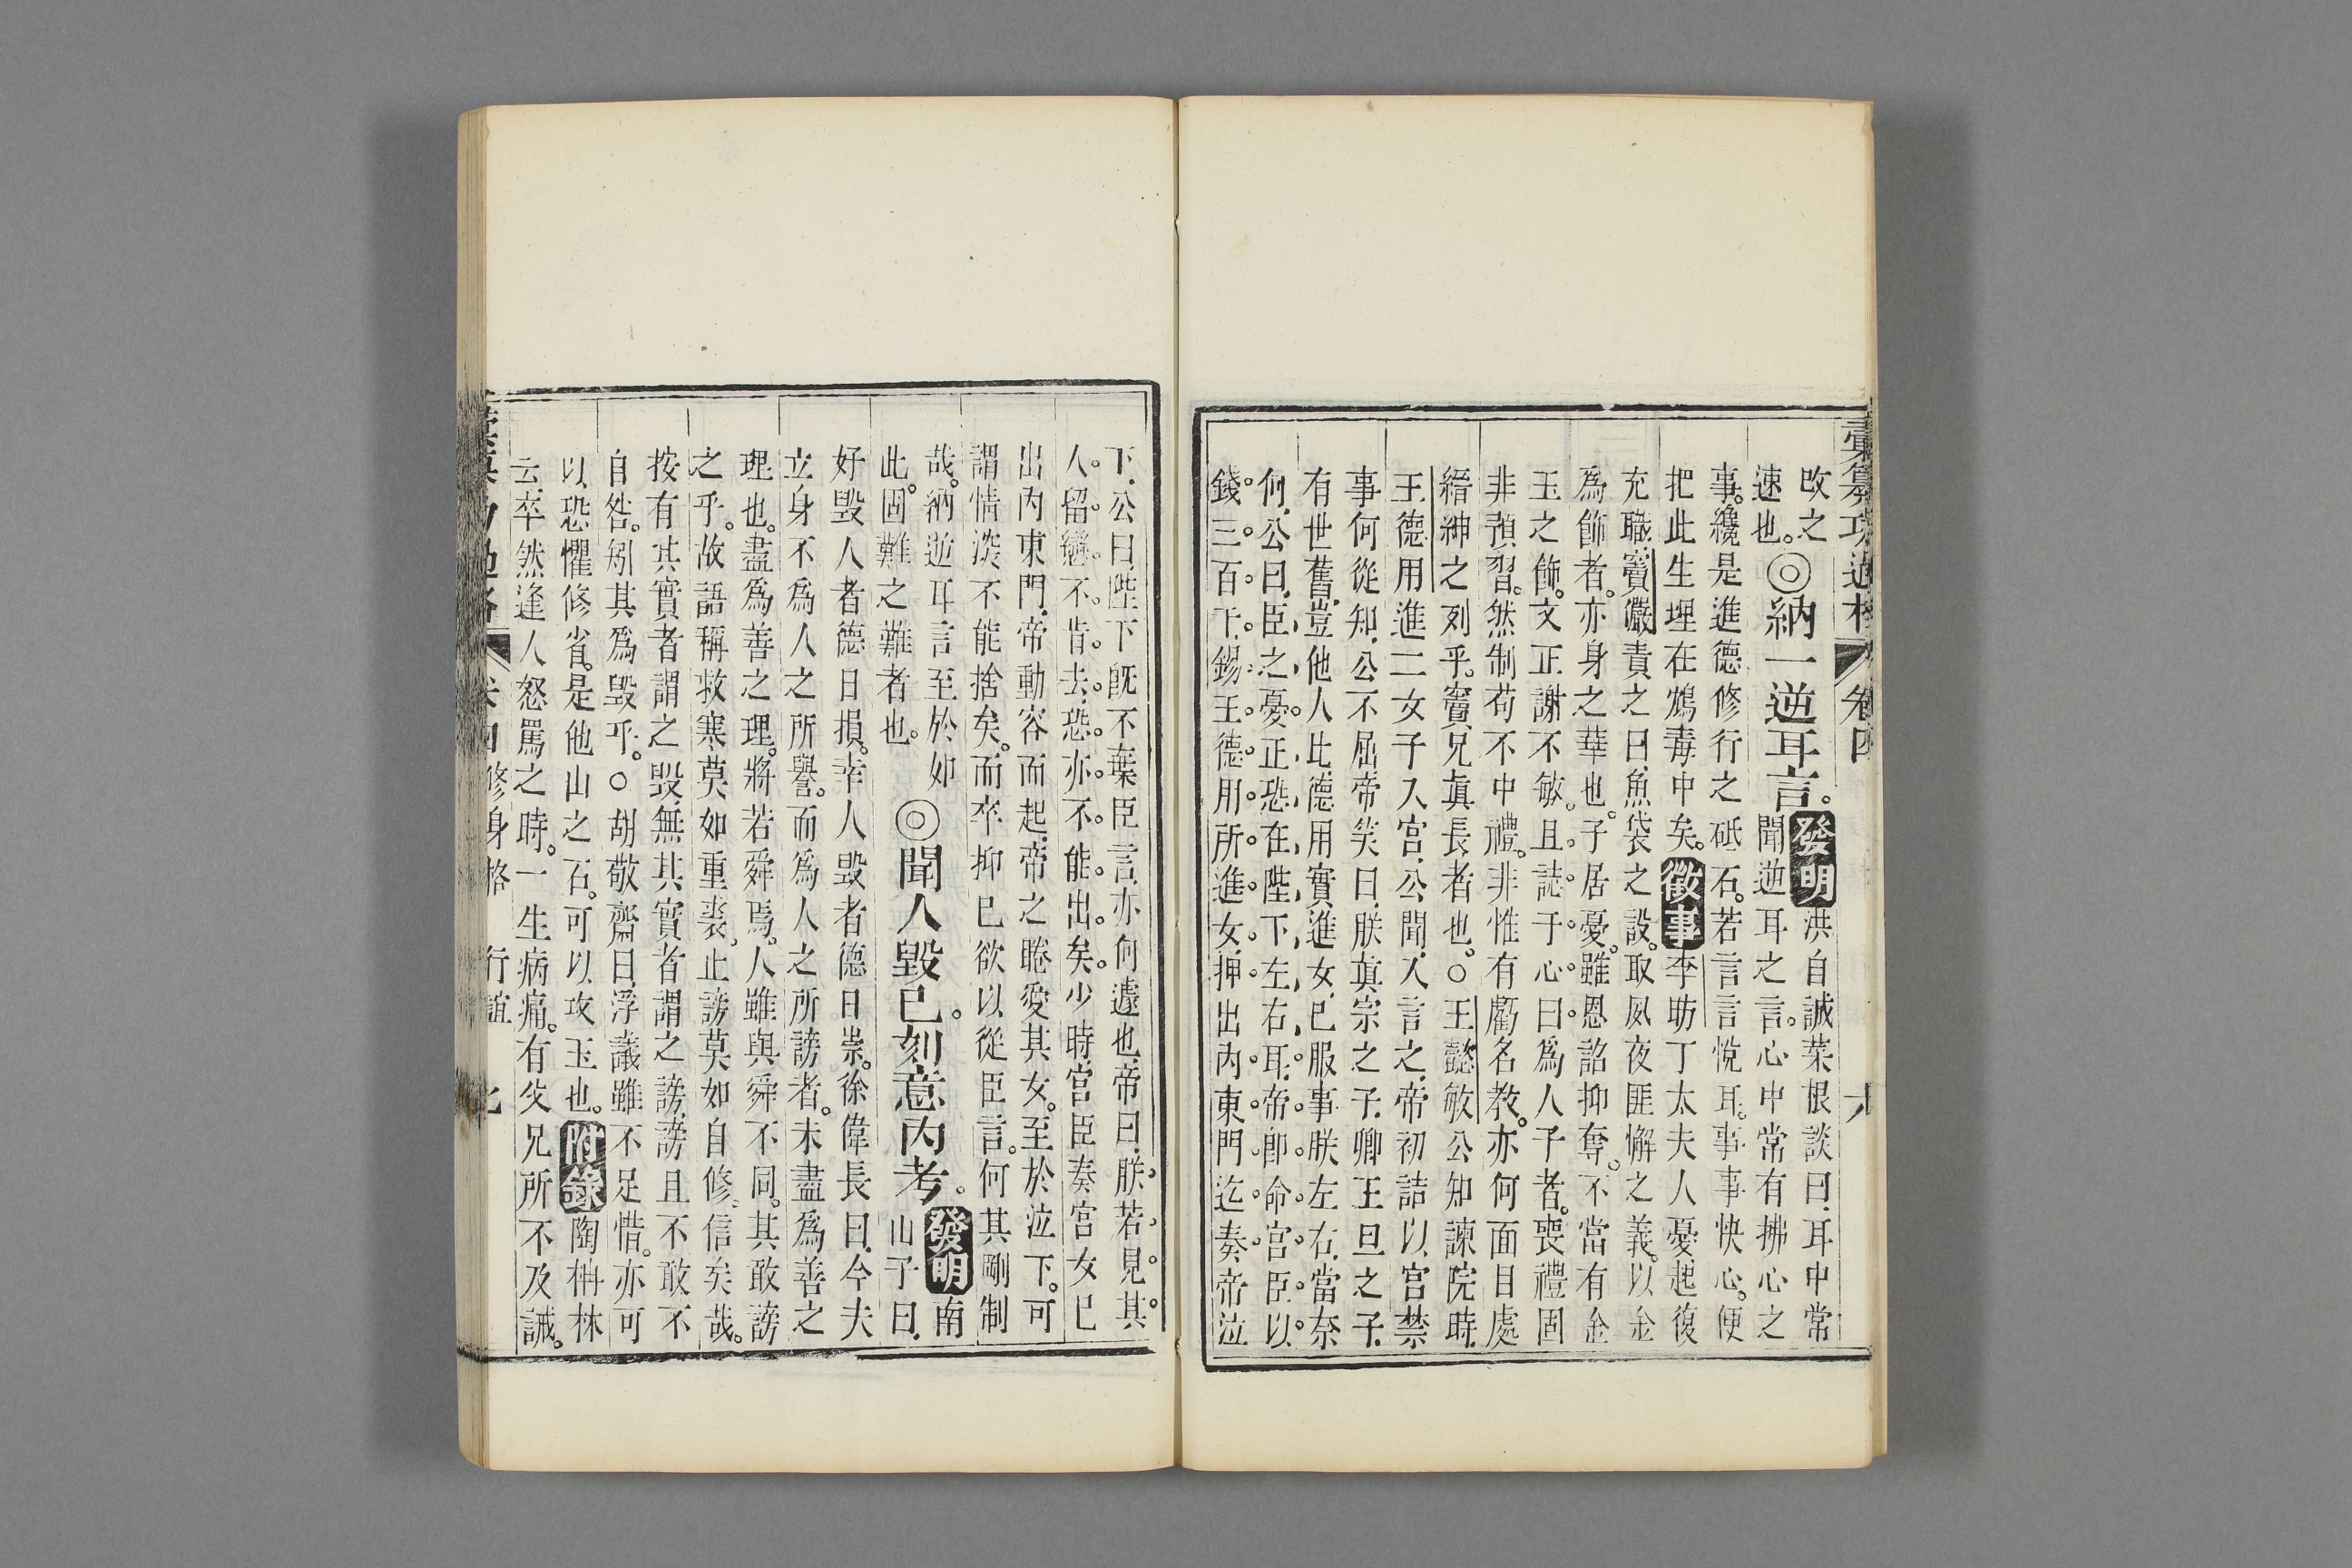 彙纂功過格 卷四 六
改之
速也。◎納一逆耳言。發明洪自誠菜根談曰耳中常
聞逆耳之言。心中常有拂心之
事。纔是進德修行之砥石。若言言悅耳。事事快心。便
把此生埋在鴆毒中矣。徵事李昉丁太夫人憂起復
充職竇儼責之曰魚袋之設。取夙夜匪懈之義。以金
爲飾者。亦身之華也。子居憂。雖恩詔抑奪。不當有金
玉之飾。文正謝不敏。且誌于心曰爲人子者。喪禮固
非預習。然制苟不中禮。非惟有虧名教。亦何面目處
縉紳之列乎。竇兄真長者也。○王懿敏公知諫院時
王德用進二女子入宮公聞入言之帝初詰以宮禁
事何從知公不屈帝笑曰朕真宗之子卿王旦之子
有世舊豈他人比德用實進女已服事朕左右當奈
何公曰臣之憂正恐在陛下左右耳帝卽命宮臣以
錢三百千錫王德用所進女押出內東門迄奏帝泣
下公曰陛下旣不棄臣言亦何遽也帝曰朕若見其
人留戀不肯去恐亦不能出矣少時宮臣奏宮女已
出內東門帝動容而起帝之睠愛其女。至於泣下。可
謂情深不能捨矣。而卒抑已欲以從臣言。何其剛制
哉。納逆耳言至於如
此。固難之難者也。◎聞人毀已。刻意內考。發明南
山子曰
好毀人者德日損。幸人毀者德日崇。徐偉長曰今夫
立身不爲人之所譽。而爲人之所謗者。未盡爲善之
理也。盡爲善之理。將若舜焉。人雖與舜不同。其敢謗
之乎。故語稱救寒莫如重裘。止謗莫如自修。信矣哉。
按有其實者謂之毀無其實者謂之謗謗且不敢不
自咎。矧其爲毀乎。○胡敬齋曰浮議雖不足惜。亦可
以恐懼修省。是他山之石。可以攻玉也。附錄陶栟林
云卒然逢人怒罵之時。一生病痛。有父兄所不及誡。
卷四 修身格 行誼